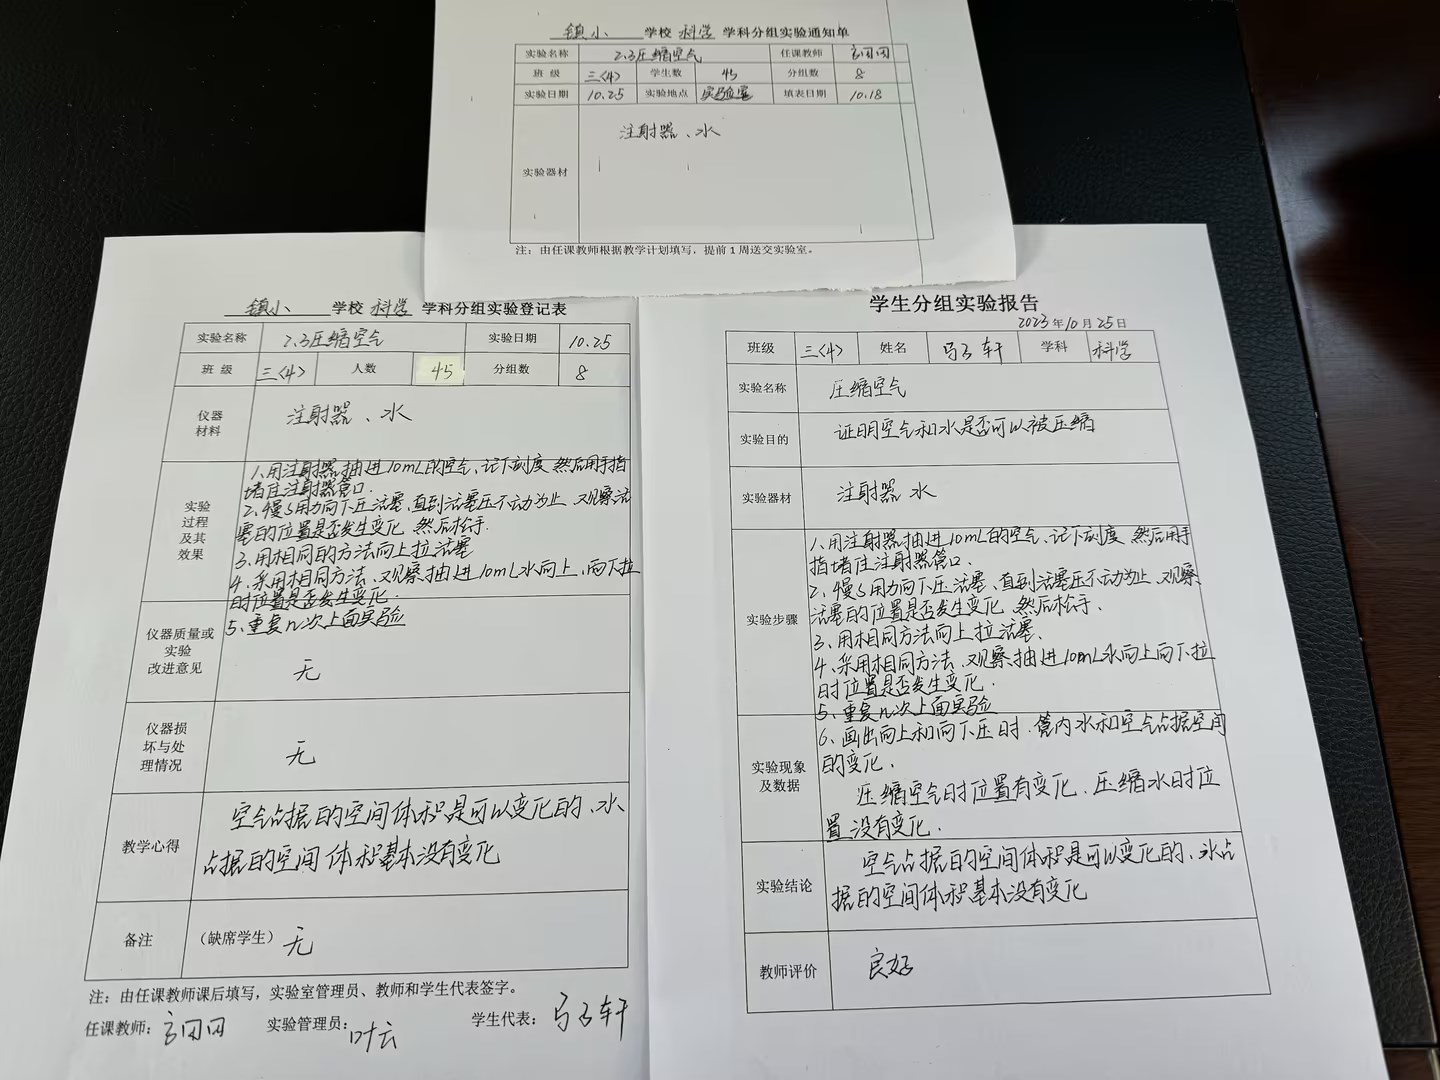 镇小 学校 科学 学科分组实验通知单
实验名称 2.3压缩空气 任课教师
班 级 三(4) 学生数 45 分组数 8
实验日期 10.25 实验地点 实验室 填表日期 10.18
实验器材 注射器、水
注：由任课教师根据教学计划填写，提前1周送交实验室。
镇小 学校 科学 学科分组实验登记表
实验名称 2.3压缩空气 实验日期 10.25
班 级 三(4) 人数 45 分组数 8
仪器
材料
注射器、水
实验
过程
及其
效果
1、用注射器抽进10mL的空气、记下刻度 然后用手指
堵住注射器管口.
2、慢慢用力向下压活塞、直到活塞压不动为止、观察活
塞的位置是否发生变化 然后松手.
3、用相同的方法向上拉活塞
4、采用相同方法、观察抽进10mL水向上、向下拉
时位置是否发生变化.
5、重复几次上面实验
仪器质量或
实验
改进意见
无
仪器损
坏与处
理情况
无
教学心得
空气占据的空间体积是可以变化的、水
占据的空间体积基本没有变化
备注 （缺席学生） 无
注：由任课教师课后填写，实验室管理员、教师和学生代表签字。
任课教师： 实验管理员：叶云 学生代表：马子轩
学生分组实验报告
2023年10月25日
班级 三(4) 姓名 马子轩 学科 科学
实验名称 压缩空气
实验目的 证明空气和水是否可以被压缩
实验器材 注射器 水
实验步骤
1、用注射器抽进10mL的空气、记下刻度 然后用手
指堵住注射器管口.
2、慢慢用力向下压活塞、直到活塞压不动为止、观察
活塞的位置是否发生变化 然后松手.
3、用相同方法向上拉活塞.
4、采用相同方法、观察抽进10mL水向上向下拉
时位置是否发生变化.
5、重复几次上面实验
6、画出向上和向下压时.管内水和空气占据空间
的变化.
实验现象
及数据
压缩空气时位置有变化.压缩水时位
置没有变化.
实验结论
空气占据的空间体积是可以变化的、水占
据的空间体积基本没有变化
教师评价 良好